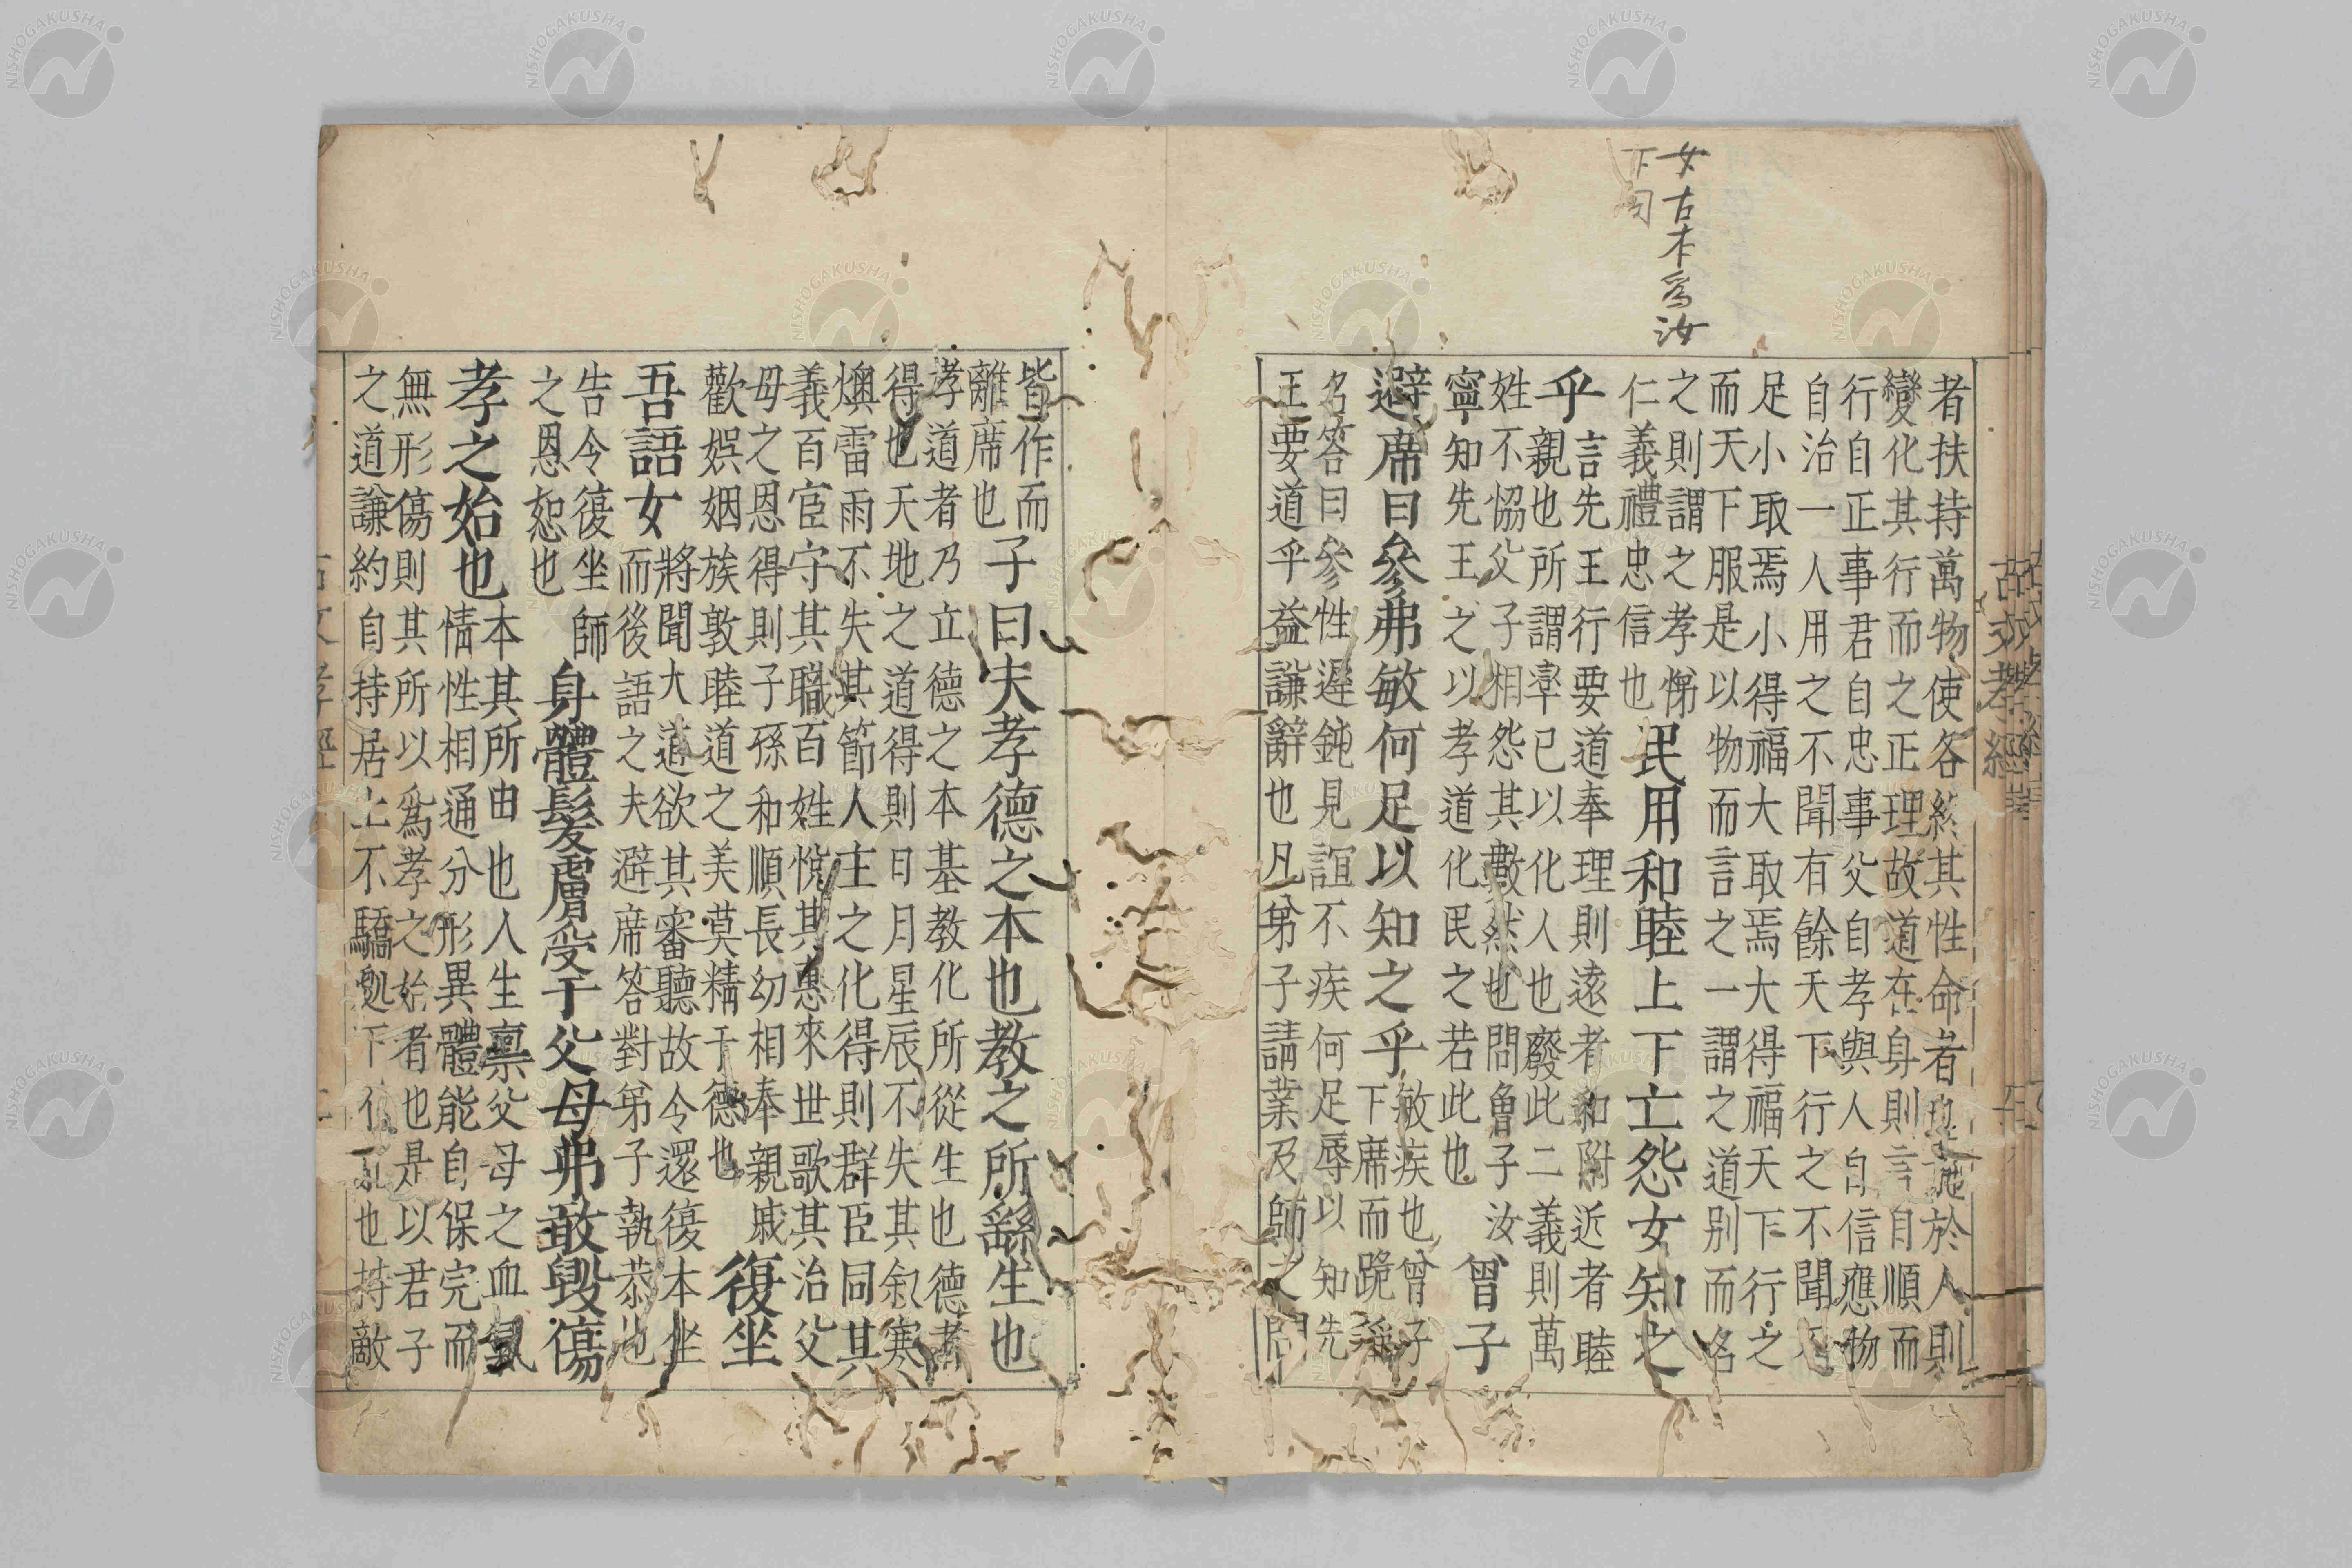 女古本為汝
下同
者扶持萬物使各終其性命者也施於人則
變化其行而之正理故道在身則言自順而
行自正事君自忠事父自孝與人自信應物
自治一人用之不聞有餘天下行之不聞不
足小取焉小得福大取焉大得福天下行之
而天下服是以物而言之一謂之道別而名
之則謂之孝悌
仁義禮忠信也
民用和睦上下亡怨女知之
乎
言先王行要道奉理則遠者和附近者睦
親也所謂率己以化人也廢此二義則萬
姓不恊父子相怨其數然也問曾子汝
寧知先王之以孝道化民之若此也
曾子
避席曰參弗敏何足以知之乎
敏疾也曾子
下席而跪稱
名答曰參性遲鈍見誼不疾何足辱以知先
王要道乎益謙辭也凡弟子請業及師之問
皆作而
離席也
子曰夫孝德之本也教之所繇生也
孝道者乃立德之本基教化所從生也德者
得也天地之道得則日月星辰不失其叙寒
燠雷雨不失其節人主之化得則群臣同其
義百官守其職百姓悅其惠來世歌其治父
母之恩得則子孫和順長幼相奉親戚
歡娯姻族敦睦道之美莫精于德也
復坐
吾語女
將聞大道欲其審聽故令還復本坐
而後語之夫避席答對弟子執恭也
告令復坐師
之恩恕也
身體髮膚受于父母弗敢毀傷
孝之始也
本其所由也人生禀父母之血氣
情性相通分形異體能自保完而
無形傷則其所以爲孝之始者也是以君子
之道謙約自持居上不驕處下不乱也持敵
古文孝經
NISHOGAKUSHA